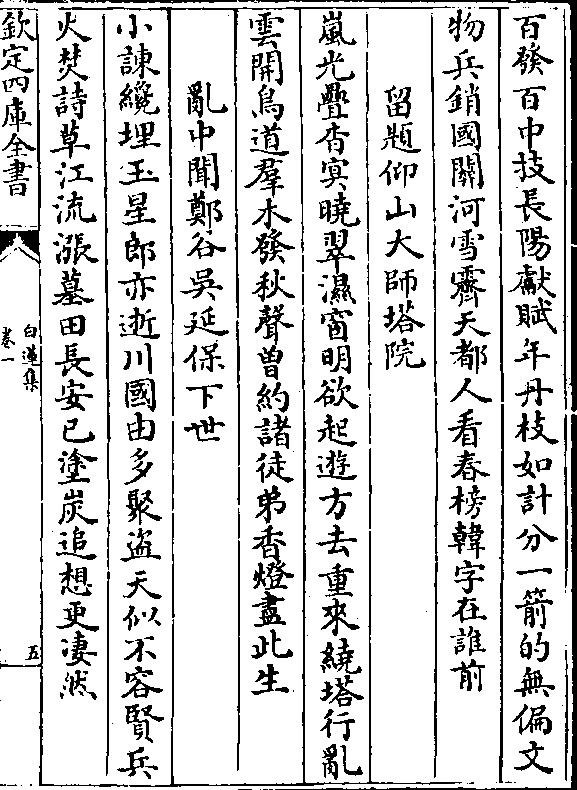 百發百中技長陽獻賦年丹枝如計分一箭的無偏文
物兵銷國關河雪霽天都人看春榜韓字在誰前
留題仰山大師塔院
嵐光疊杳冥曉翠濕窗明欲起遊方去重來繞塔行亂
雲開鳥道羣木發秋聲曽約諸徒弟香燈盡此生
亂中聞鄭谷吳延保下世
小諫纔埋玉星郎亦逝川國由多聚盗天似不容賢兵
火焚詩草江流漲墓田長安已塗炭追想更凄然
欽定四庫全書
白蓮集
卷一
五